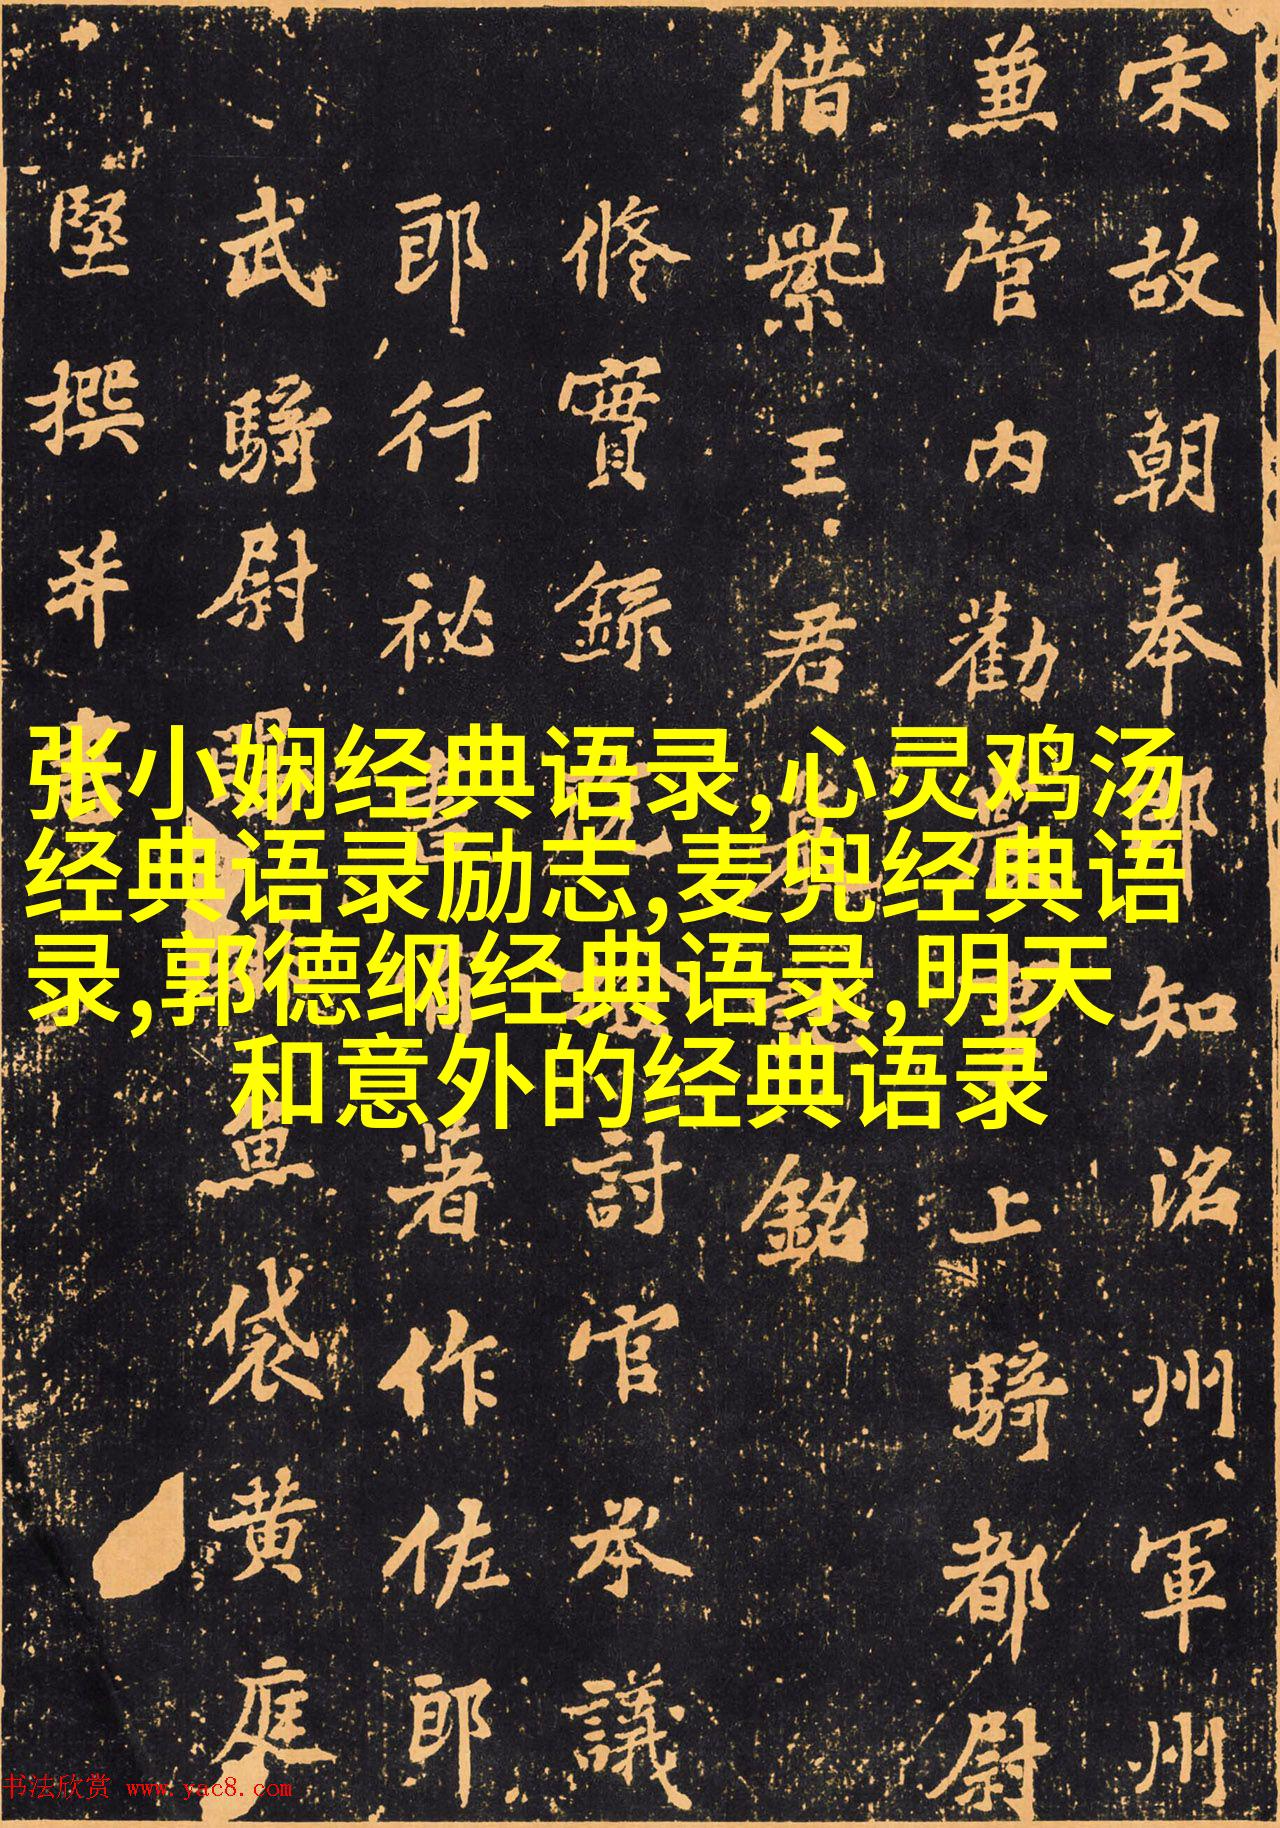 宋故朝奉郎知洺州軍州
兼管内勸農事上騎都尉
借紫王君墓誌銘
修實錄院檢討官承議
郎行秘書省著作佐郎
武騎尉賜緋魚袋黄庭
堅撰并書
张小娴经典语录,心灵鸡汤
经典语录励志,麦兜经典语
录,郭德纲经典语录,明天
和意外的经典语录
书法欣赏 www.yac8.com